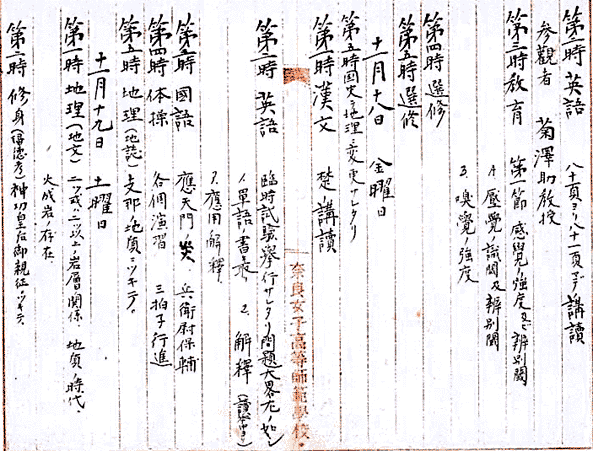 第二時 英語 八十頁ヨリ八十一頁マデノ講讀
参觀者 菊澤助教授
第三時 教育 第一節 感覺ノ強度及ビ辨別閾
4. 壓覺ノ識閾及辨別閾
3. 嗅覺ノ強度
第四時 選修
第五時 選修
十一月十八日 金曜日
第五時國史ヲ地理ニ変更サレタリ
第一時 漢文 楚 講讀
第二時 英語 臨時試驗擧行サレタリ問題大畧左ノ如シ
1. 單語書取 2. 解釋 (讀本中ヨリ)
3. 應用解釋
第三時 國語 應天門炎 兵衛尉保輔
第四時 体操 各個演習 三拍子行進
第五時 地理(地誌) 支那ノ地質ニツキテ。
十一月十九日 土曜日
第一時 地理(地文) 二ツ或ハ二ツ以上ノ岩層ノ関係 地質ノ時代
火成岩ノ存在
第二時 修身 神功皇后御親征ニツキテ
奈良女子高等師範學校